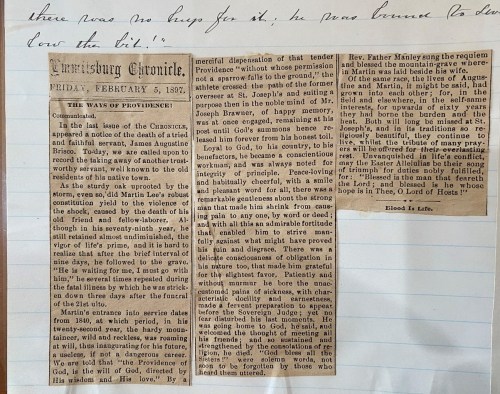 there was no help for it; he was bound to swal-
low the bit!"
Emmitsburg Chronicle.
FRIDAY, FEBRUARY 5, 1897.
THE WAYS OF PROVIDENCE!
Communicated.
In the last issue of the CHRONICLE,
appeared a notice of the death of a tried
and faithful servant, James Augustine
Brisco. To-day, we are called upon to
record the taking away of another trust-
worthy servant, well known to the old
residents of his native town.
As the sturdy oak uprooted by the
storm, even so, did Martin Lee's robust
constitution yield to the violence of
the shock, caused by the death of his
old friend and fellow-laborer. Al-
though in his seventy-ninth year, he
still retained almost undiminished, the
vigor of life's prime, and it is hard to
realize that after the brief interval of
nine days, he followed to the grave.
"He is waiting for me, I must go with
him," he several times repeated during
the fatal illness by which he was strick-
en down three days after the funeral
of the 21st ulto.
Martin's entrance into service dates
from 1840, at which period, in his
twenty-second year, the hardy moun-
taineer, wild and reckless, was roaming
at will, thus inaugurating for his future,
a useless, if not a dangerous career.
We are told that "the Providence of
God, is the will of God, directed by
His wisdom and His love." By a
merciful dispensation of that tender
Providence "without whose permission
not a sparrow falls to the ground," the
athlete crossed the path of the former
overseer at St. Joseph's and suiting a
purpose then in the noble mind of Mr.
Joseph Brawner, of happy memory,
was at once engaged, remaining at his
post until God's summons hence re-
leased him forever from his honest toil.
Loyal to God, to his country, to his
benefactors, he became a conscientious
workman; and was always noted for
integrity of principle. Peace-loving
and habitually cheerful, with a smile
and pleasant word for all, there was a
remarkable gentleness about the strong
man that made him shrink from caus-
ing pain to any one, by word or deed;
and with all this an admirable fortitude
that enabled him to strive man-
fully against what might have proved
his ruin and disgrace. There was a
delicate consciousness of obligation in
his nature too, that made him grateful
for the slightest favor. Patiently and
without murmur he bore the unac-
customed pains of sickness, with char-
acteristic docility and earnestness,
made a fervent preparation to appear
before the Sovereign Judge; yet no
fear disturbed his last moments. He
was going home to God, he said, and
welcomed the thought of meeting all
his friends; and so sustained and
strengthened by the consolations of re-
ligion, he died. "God bless all the
Sisters!" were solemn words, not
soon to be forgotten by those who
heard them uttered.
Rev. Father Manley sung the requiem
and blessed the mountain-grave where-
in Martin was laid beside his wife.
Of the same race, the lives of Augus-
tine and Martin, it might be said, had
grown into each other; for, in the
field and elsewhere, in the self-same
interests, for upwards of sixty years
they had borne the burden and the
heat. Both will be missed at St.
Joseph's, and in its traditions so re-
ligiously beautiful, they continue to
live, whilst the tribute of many pray-
ers will be offered for their everlasting
rest. Unvanquished in life's conflict,
may the Easter Alleluias be their song
of triumph for duties nobly fulfilled,
for: "Blessed is the man that feareth
the Lord; and blessed is he whose
hope is in Thee, O Lord of Hosts!"
Blood Is Life.